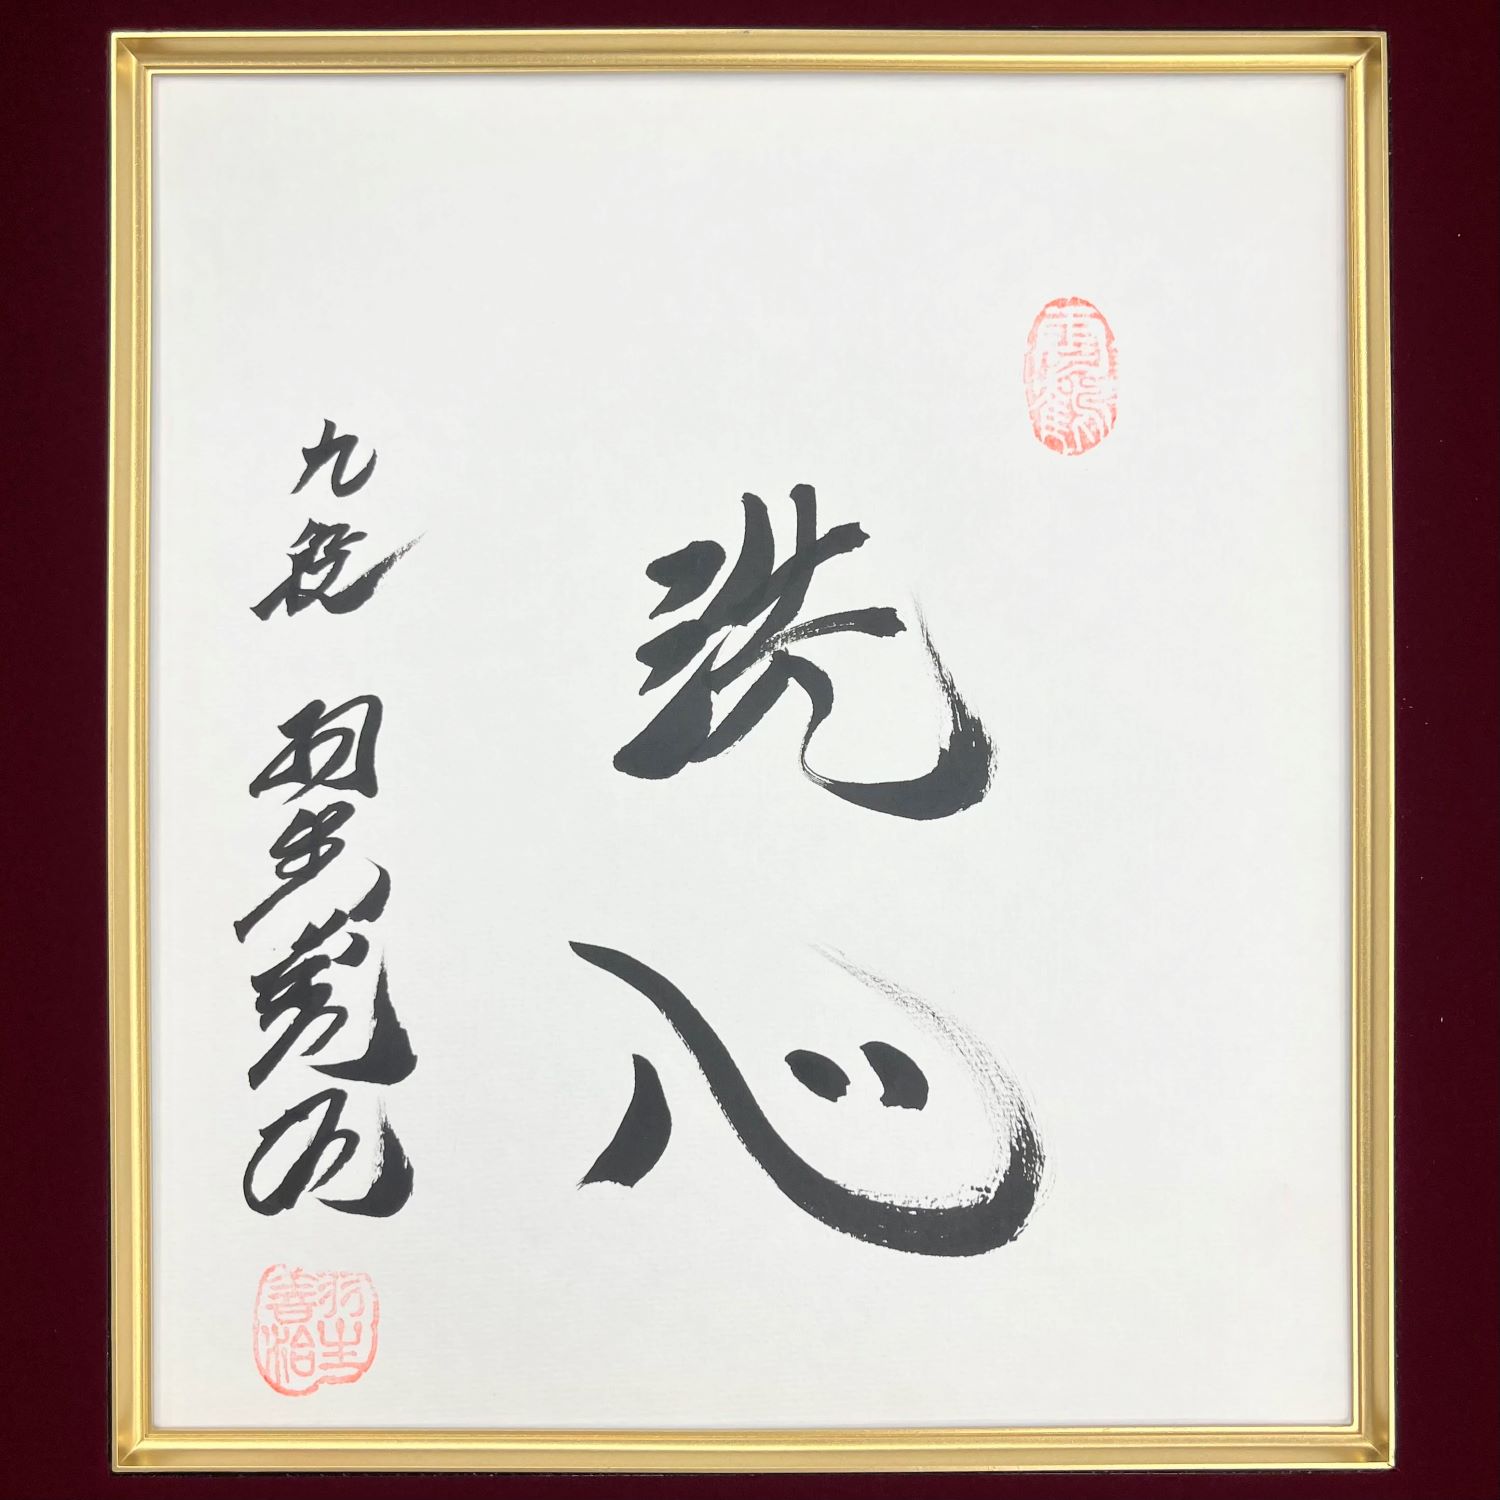 洗心
九段 羽生善治
羽生
善治